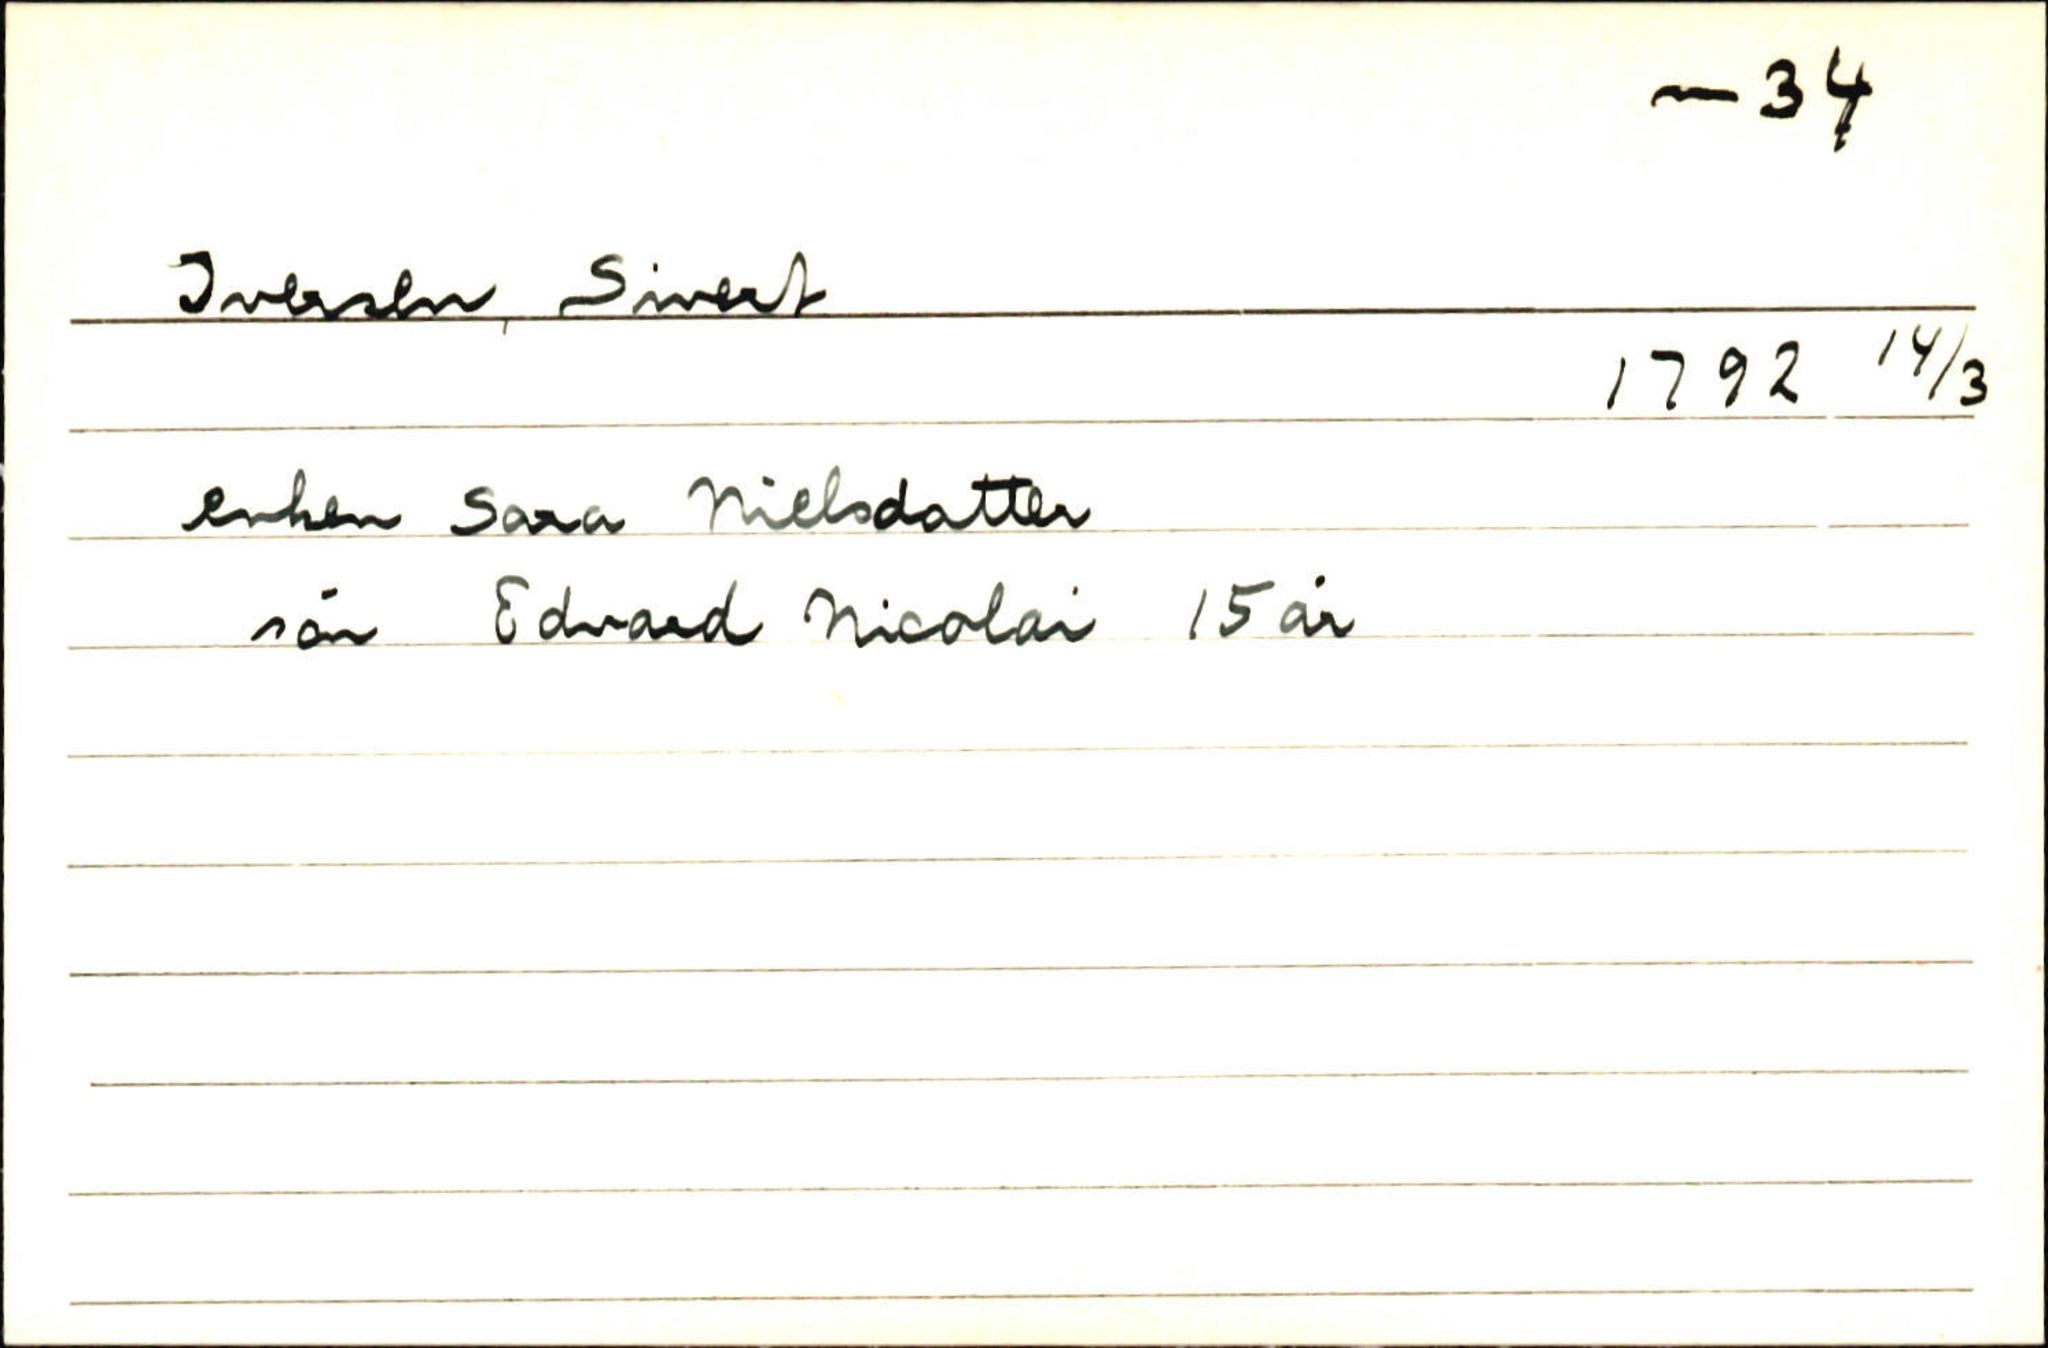 — 34
Iversen, Sivert
1792 14/3
enken Sara Nielsdatter
sön Edvard Nicolai 15 år